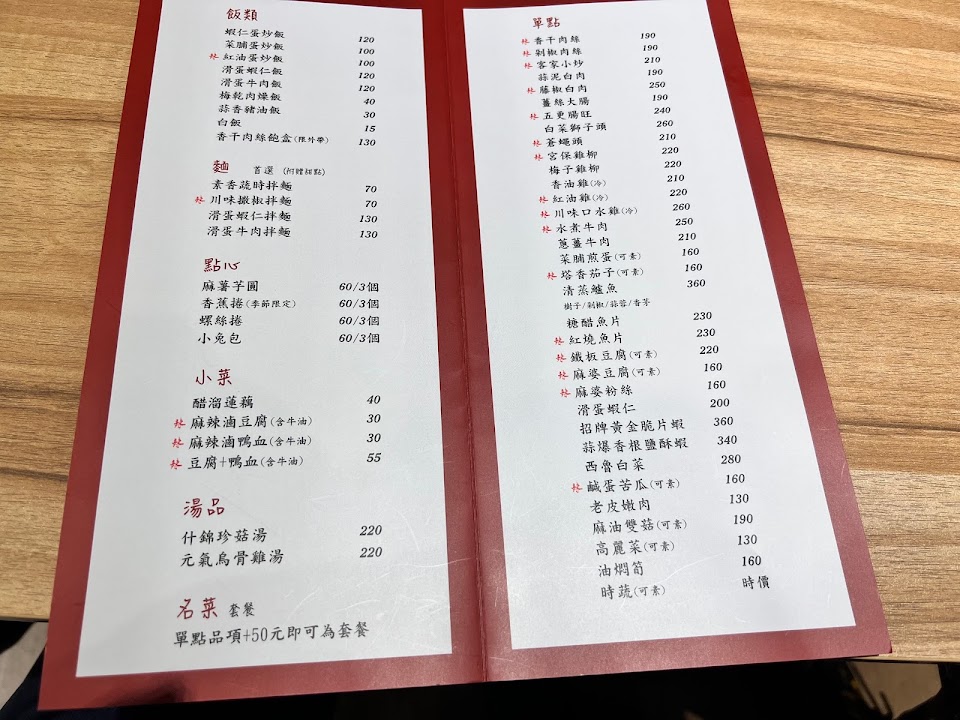 飯類
蝦仁蛋炒飯 120
菜脯蛋炒飯 100
紅油蛋炒飯 100
滑蛋蝦仁飯 120
滑蛋牛肉飯 120
梅乾肉燥飯 40
蒜香豬油飯 30
白飯 15
香干肉絲飽盒(限外帶) 130
麵 首選 (附贈甜點)
素香蔬時拌麵 70
川味撒椒拌麵 70
滑蛋蝦仁拌麵 130
滑蛋牛肉拌麵 130
點心
麻薯芋圓 60/3個
香蕉捲(季節限定) 60/3個
螺絲捲 60/3個
小兔包 60/3個
小菜
醋溜蓮藕 40
麻辣滷豆腐(含牛油) 30
麻辣滷鴨血(含牛油) 30
豆腐+鴨血(含牛油) 55
湯品
什錦珍菇湯 220
元氣烏骨雞湯 220
名菜 套餐
單點品項+50元即可為套餐
單點
香干肉絲 190
剁椒肉絲 190
客家小炒 210
蒜泥白肉 190
藤椒白肉 250
薑絲大腸 190
五更腸旺 240
白菜獅子頭 260
蒼蠅頭 210
宮保雞柳 220
梅子雞柳 220
香油雞(冷) 210
紅油雞(冷) 220
川味口水雞(冷) 260
水煮牛肉 250
蔥薑牛肉 210
菜脯煎蛋(可素) 160
塔香茄子(可素) 160
清蒸鱸魚 360
樹子/剁椒/蒜蓉/香茅
糖醋魚片 230
紅燒魚片 230
鐵板豆腐(可素) 220
麻婆豆腐(可素) 160
麻婆粉絲 160
滑蛋蝦仁 200
招牌黃金脆片蝦 360
蒜爆香根鹽酥蝦 340
西魯白菜 280
鹹蛋苦瓜(可素) 160
老皮嫩肉 130
麻油雙菇(可素) 190
高麗菜(可素) 130
油燜筍 160
時蔬(可素) 時價